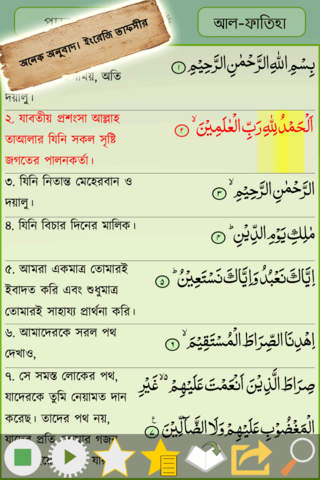 পা
আল-ফাতিহা
অনেক অনুবাদ। ইংরেজি তাফসীর
بِسْمِ اللهِ الرَّحْمٰنِ الرَّحِيْمِ ۝١
অতি
দয়ালু।
২. যাবতীয় প্রশংসা আল্লাহ
তাআলার যিনি সকল সৃষ্টি
জগতের পালনকর্তা।
اَلْحَمْدُ لِلّٰهِ رَبِّ الْعٰلَمِيْنَ ۙ ۝٢
৩. যিনি নিতান্ত মেহেরবান ও
দয়ালু।
الرَّحْمٰنِ الرَّحِيْمِ ۙ ۝٣
৪. যিনি বিচার দিনের মালিক।
مٰلِكِ يَوْمِ الدِّيْنِ ؕ ۝٤
৫. আমরা একমাত্র তোমারই
ইবাদত করি এবং শুধুমাত্র
তোমারই সাহায্য প্রার্থনা করি।
اِيَّاكَ نَعْبُدُ وَاِيَّاكَ نَسْتَعِيْنُ ؕ ۝٥
৬. আমাদেরকে সরল পথ
দেখাও,
اِهْدِنَا الصِّرَاطَ الْمُسْتَقِيْمَ ۙ ۝٦
৭. সে সমস্ত লোকের পথ,
যাদেরকে তুমি নেয়ামত দান
করেছ। তাদের পথ নয়,
যাদের প্রতি তোমার গজব
صِرَاطَ الَّذِيْنَ اَنْعَمْتَ عَلَيْهِمْ ۙ غَيْرِ
الْمَغْضُوْبِ عَلَيْهِمْ وَلَا الضَّآلِّيْنَ ۝٧